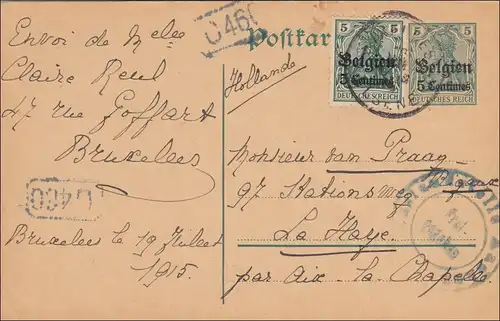 Envoi de Melle
Claire Reul
47 rue Goffart
Bruxelles
Bruxelles le 19 Juillet
1915
Postkar
Hollande
5 5
Belgien
5 Centimes
DEUTSCHES REICH
5 5
Belgien
5 Centimes
DEUTSCHES REICH
Monsieur van Praag
97 Stationsweg
La Haye
par Aix-la-Chapelle